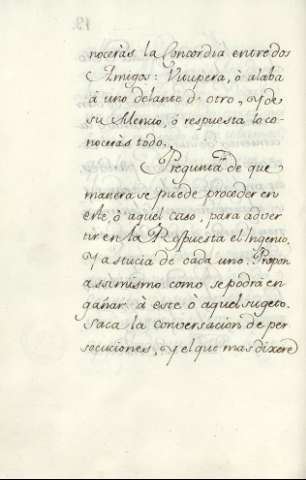 nocerás la Concordia entre dos
Amigos: Vitupera, ò alaba
à uno delante d.e otro, y de
su silencio, ò respuesta lo co-
nocerás todo.
Pregunta de que
manera se puede proceder en
este, ò aquel caso, para adver
tir en la Respuesta el Ingenio,
y astucia de cada uno. Propon
assimismo como se podrá en
gañar à este ò aquel sugeto.
Saca la conversacion de per
socuciones, y el que mas dixere